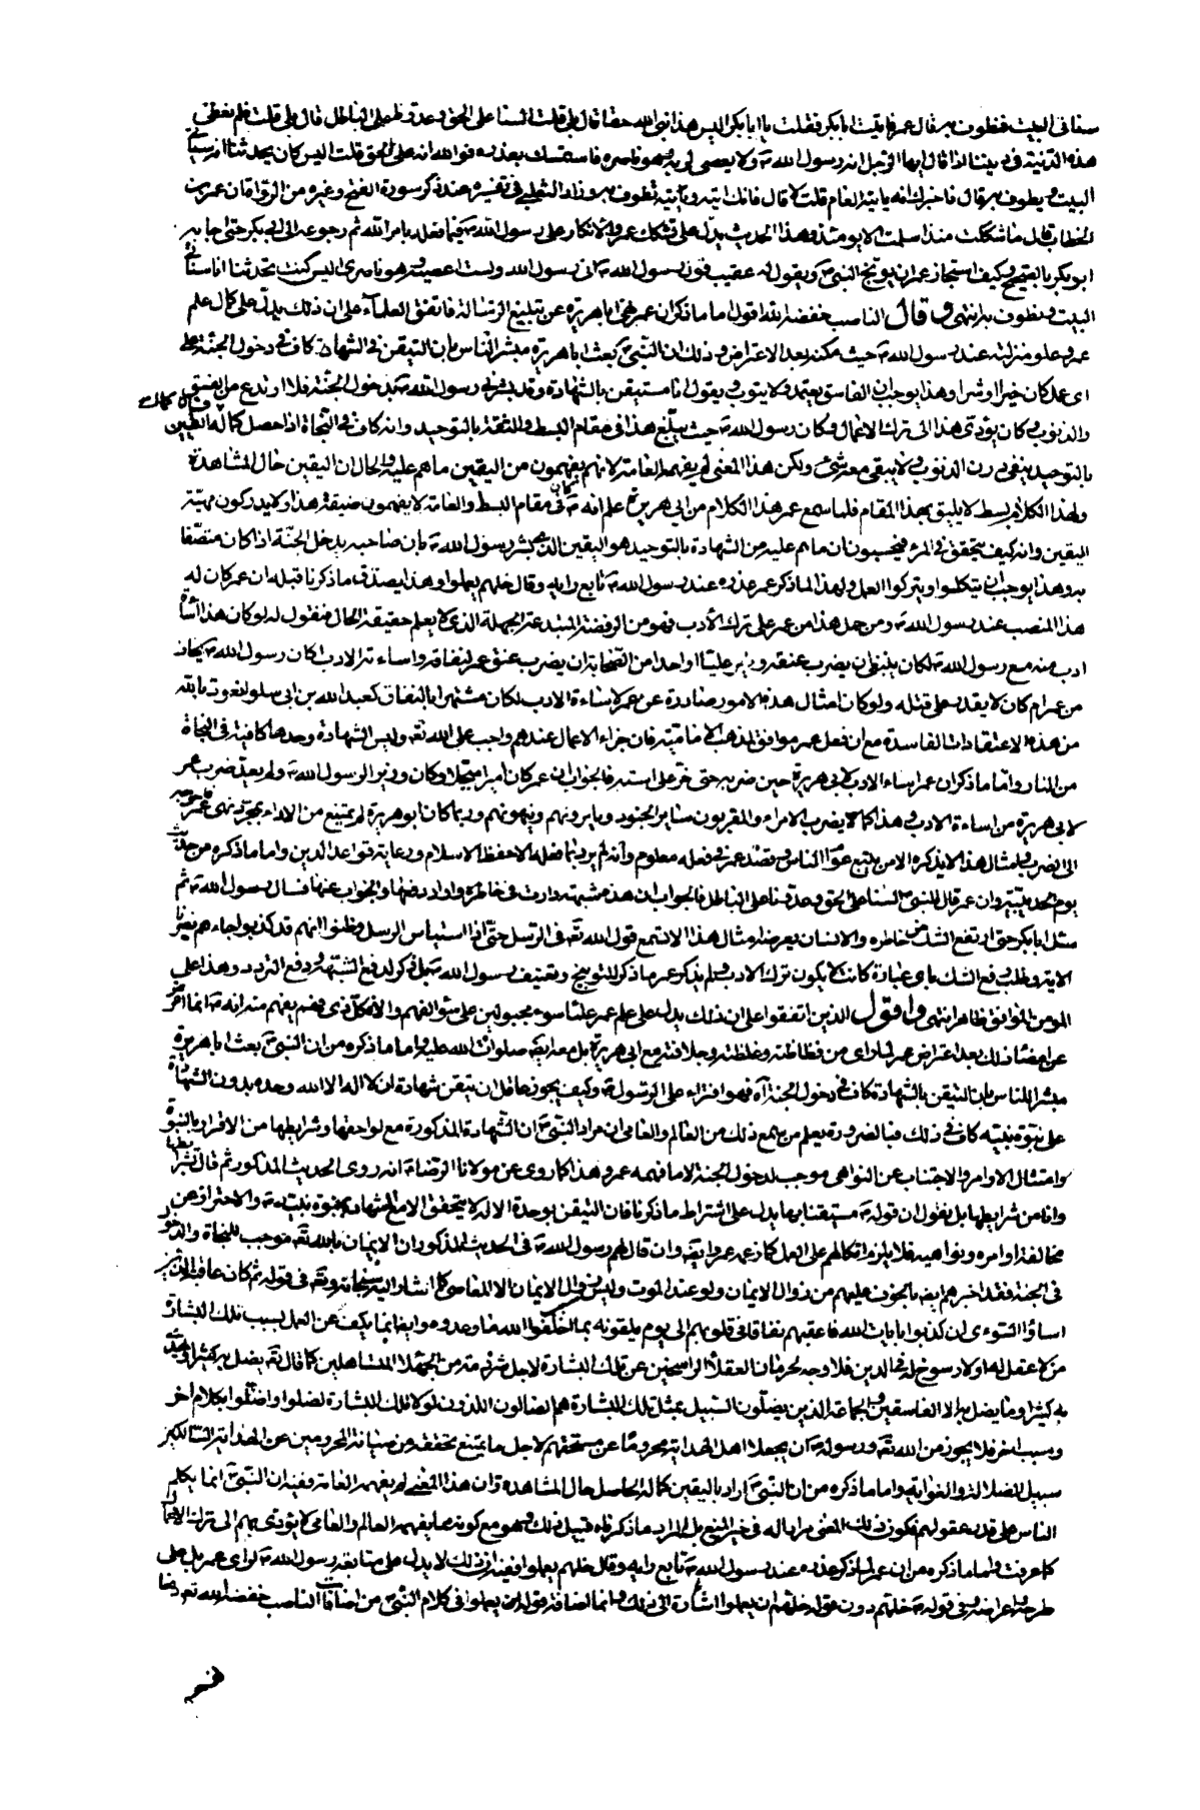 سناتى البيت فنطوف به قال عمر فاتيت ابا بكر فقلت يا ابا بكر اليس هذا نبى الله حقا قال بلى قلت السنا على الحق وعدونا على الباطل قال بلى قلت فلم نعطى
هذه الدنية فى ديننا اذا قال ايها الرجل انه رسول الله ص ولا يعصى لربه وهو ناصره فاستمسك بعذره فوالله انه على الحق قلت اليس كان يحدثنا انه سياتى
البيت ويطوف به قال فاخبرك انه ياتيه العام قلت لا قال فانك اتيه وتطوف به وزاد الثعلبى فى تفسيره عند ذكر سورة الفتح وغيره من الرواة ان عمر بن
الخطاب قال ما شككت منذ اسلمت الا يومئذ وهذا الحديث يدل على تشكك عمر والانكار على رسول الله ص فيما فعله بامر الله ثم رجوعه الى ابى بكر حتى اجابه
ابو بكر بالصحيح وكيف استجاز عمر ان يوبخ النبى ص ويقول له عقيب قول رسول الله ص انى رسول الله ولست اعصيه وهو ناصرى اليس كنت تحدثنا انا سناتى
البيت ونطوف به انتهى وقال الناصب خفضه الله اقول اما ما ذكر ان عمر نهى ابا هريرة عن تبليغ الرسالة فاتفق العلماء على ان ذلك يدل على كمال علم
عمر وعلو منزلته عند رسول الله ص حيث مكنه بعد الاعتراض وذلك ان النبى ص بعث ابا هريرة مبشر الناس بان التيقن فى الشهادة كاف فى دخول الجنة على
اى عمل كان خيرا او شرا وهذا يوجب ان الفاسق يعتمد ولا يتوب ويقول انا مستيقن بالشهادة وقد بشرنى رسول الله ص بدخول الجنة فلا ارتدع من الفسق
والذنوب وكان يؤدى هذا الى ترك الاعمال وكان رسول الله ص حيث يبلغ هذا فى مقام البسط والثقة بالتوحيد وانه كاف فى النجاة اذا حصل كماله
بالتوحيد ينفى درن الذنوب ولا يبقى معه شئ ولكن هذا المعنى لم يفهمه العامة لانهم يفهمون من اليقين ما هم عليه والحال ان اليقين حال المشاهدة
ولهذا الكلام بسط لا يليق بهذا المقام فلما سمع عمر هذا الكلام من ابى هريرة علم انه ص فى مقام البسط والعامة لا يفهمون حقيقة هذا ولا يدركون مهية
اليقين وانه كيف يتحقق فى المرء فيحسبون ان ما هم عليه من الشهادة بالتوحيد هو اليقين الذى بشر رسول الله ص بان صاحبه يدخل الجنة اذا كان متصفا
به وهذا يوجب ان يتكلوا ويتركوا العمل ولهذا لما ذكر عمر عذره عند رسول الله ص تابع رايه وقال خلهم يعملوا وهذا يصدق ما ذكرنا قبله ان عمر كان له
هذا المنصب عند رسول الله ص ومن حمل هذا من عمر على ترك الادب فهو من الرفضة المبتدعة الجهلة الذى لا يعلم حقيقة الحال فنقول له لو كان هذا اساءة
ادب منه مع رسول الله ص لكان ينبغى ان يضرب عنقه ويامر عليا او احدا من الصحابة ان يضرب عنق عمر لنفاقه واساءته الادب اكان رسول الله ص يخاف
من عمر ام كان لا يقدر على قتله ولو كان امثال هذه الامور صادرة عن عمر لاساءة الادب لكان مشتهرا بالنفاق كعبد الله بن ابى سلول نعوذ بالله
من هذه الاعتقادات الفاسدة مع ان فعل عمر موافق لمذهب الامامية فان جزاء الاعمال عندهم واجب على الله تعالى وليس الشهادة وحدها كافية فى النجاة
من النار واما ما ذكر ان عمر اساء الادب لابى هريرة حين ضربه حتى خر على استه فالجواب ان عمر كان اميرا مبجلا وكان وزيرا لرسول الله ص ولم يعد ضرب عمر
لابى هريرة من اساءة الادب وهذا كما لا يضرب الامراء والمقربون سائر الجنود ويامرونهم وينهونهم وربما كان ابو هريرة لم يمتنع من الاداء بمجرد نهى عمر
الى الضرب وامثال هذا لا يذكره الا من يتبع عوار الناس وقصد عمر فى فعله معلوم وانه لم يرد بافعاله الا حفظ الاسلام ورعاية قواعد الدين واما ما ذكره من حديث
يوم الحديبية وان عمر قال للنبى ص السنا على الحق وعدونا على الباطل فالجواب ان هذه شبهة دارت فى خاطره واراد رفعها والجواب عنها فسال رسول الله ص ثم
سئل ابا بكر حتى ارتفع الشك من خاطره والانسان يعرضه امثال هذا الا تسمع قول الله تعالى فى الرسل حتى اذا استيأس الرسل وظنوا انهم قد كذبوا جاءهم نصرنا
الاية وطلب رفع الشك باى عبارة كانت لا يكون ترك الادب ولم يذكر عمر ما ذكر للتوبيخ وتعنيف رسول الله ص بل ذكر لدفع الشبهة ورفع التردد وهذا على
المؤمن الموافق ظاهر انتهى واقول الذين اتفقوا على ان ذلك يدل على علم عمر علماء سوء مجبولين على سوء الفهم والا فكل ذى فهم يفهم منه انه ص انما اعرض
عن امضاء ذلك بعد اعتراض عمر لما راى من فظاظته وغلظته وجلافته مع ابى هريرة بل معه ايضا صلوات الله عليه واما ما ذكره من ان النبى ص بعث ابا هريرة
مبشر الناس بان التيقن بالشهادة كاف فى دخول الجنة اه فهو افتراء على الرسول ص وكيف يجوز عاقل ان يتيقن شهادة ان لا اله الا الله وحده بدون الشهادة
على نبوة نبيه كاف فى ذلك فبالضرورة يعلم من يسمع ذلك من العالم والعامى ان مراد النبى ص ان الشهادة المذكورة مع لواحقها وشرايطها من الاقرار بالنبوة
وامتثال الاوامر والاجتناب عن النواهى موجب لدخول الجنة لا ما فهمه عمر وهذا كما روى عن مولانا الرضا ع انه روى الحديث المذكور ثم قال بشرايطها
وانا من شرايطها بل نقول ان قوله ص مستيقنا بها يدل على اشتراط ما ذكر فان التيقن بوحدة الاله لا يتحقق الا مع الشهادة بنبوة نبيه ص والاحتراز عن
مخالفة اوامره ونواهيه فلا يلزم اتكالهم على العمل كما زعمه عمر وايضا وان قال لهم رسول الله ص فى الحديث المذكور ان الايمان بالله تعالى موجب للنجاة والدخول
فى الجنة فقد اخبرهم ايضا بالخوف عليهم من زوال الايمان ولو عند الموت وليس زوال الايمان الا للمعاصى كما اشار اليه سبحانه وتعالى فى قوله ثم كان عاقبة الذين
اساؤا السوءى ان كذبوا بايات الله فاعقبهم نفاقا فى قلوبهم الى يوم يلقونه بما اخلفوا الله ما وعدوه وايضا انما يكف عن العمل بسبب تلك البشارة
من لا عقل له ولا رسوخ له فى الدين فلا وجه لحرمان العقلاء الراسخين عن تلك البشارة لاجل شرذمة من الجهلاء المتساهلين كما قال تعالى يضل به كثيرا ويهدى
به كثيرا وما يضل به الا الفاسقين والجماعة الذين يضلون السبيل بمثل تلك البشارة هم الضالون الذين لو لا تلك البشارة لضلوا واضلوا بكلام اخر
وسبب اخر فلا يجوز من الله تعالى ورسوله ص ان يجعلا اهل الهداية محروما عن مستحقهم لاجل ما يمتنع تحققه من صيانة المحرومين عن الهداية السالكين
سبيل الضلالة والغواية واما ما ذكره من ان النبى ص اراد باليقين كماله الحاصل حال المشاهدة وان هذا المعنى لم يفهمه العامة ففيه ان النبى ص انما يكلم
الناس على قدر عقولهم فكون ذلك المعنى مرادا له فى حيز المنع بل المراد ما ذكرناه قبيل ذلك وهو مع كونه مما يفهمه العالم والعامى لا يؤدى بهم الى ترك الاعمال
كما عرفت واما ما ذكره من ان عمر لما ذكر عذره عند رسول الله ص تابع رايه وقال خلهم يعملوا ففيه ان ذلك لا يدل على متابعة رسول الله ص لراى عمر بل على
طرحه واعراضه وفى قوله ص خلهم دون قوله خلهم ان يعملوا اشارة الى ذلك وانما اضافة قوله ان يعملوا فى كلام النبى ص من اضافات الناصب خفضه الله تعالى